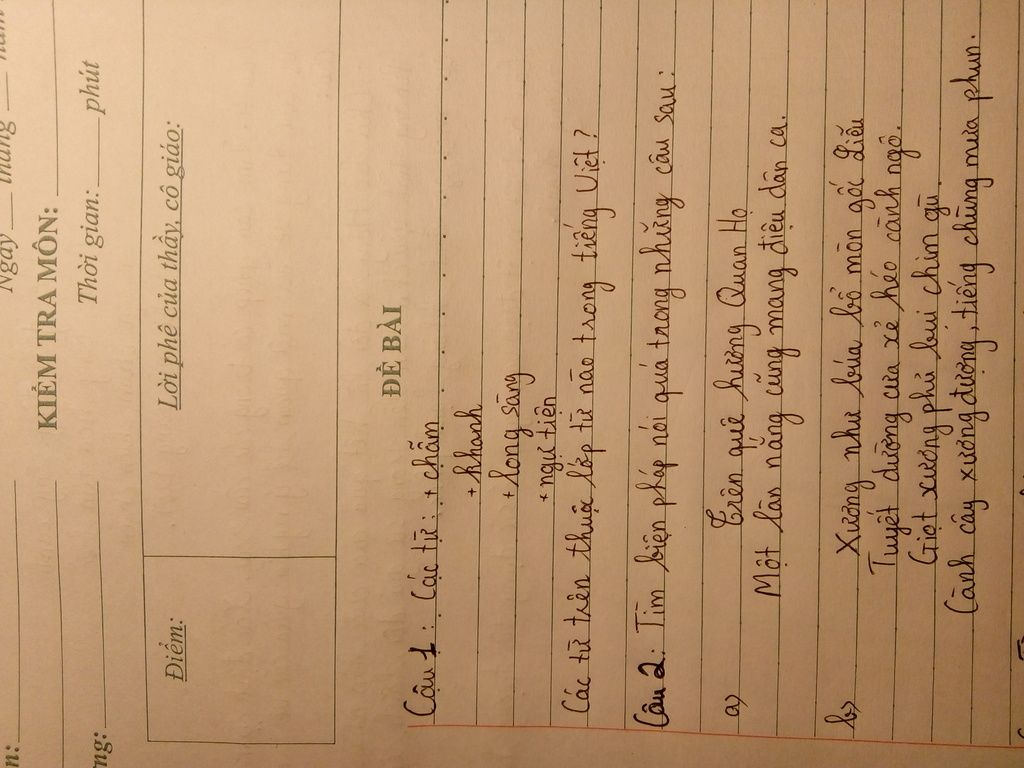 Ngày___ tháng ___ năm
KIỂM TRA MÔN:
Thời gian: ___ phút
Điểm:
Lời phê của thầy, cô giáo:
ĐỀ BÀI
Câu 1: Các từ: + chẫm
+ khanh
+ long sàng
+ ngự tiện
Các từ trên thuộc lớp từ nào trong tiếng Việt?
Câu 2: Tìm biện pháp nói quá trong những câu sau:
a) Trên quê hương Quan Họ
Một làn nắng cũng mang điệu dân ca.
b) Xương như búa bổ mòn gốc liễu
Tuyết dường cưa xẻ héo cành ngô.
Giọt xương phủ bụi chim gù
Cành cây xương đượng, tiếng chùng mưa phun.